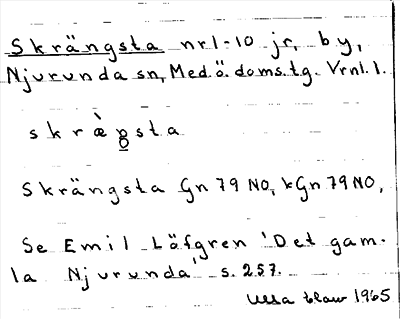 Skrängsta nr 1-10 jr, by,
Njurunda sn, Med.ö. doms.tg. Vrnl. l.
Skrängsta Gn 79 NO, kGn 79 NO,
Se Emil Löfgren 'Det gam-
la Njurunda' s. 257.
1965